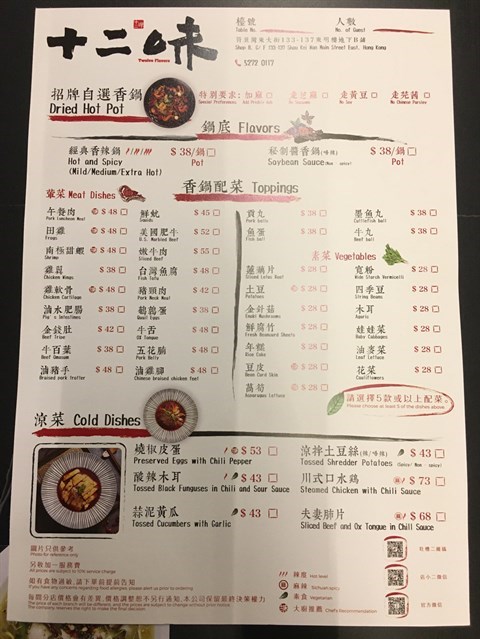 十二味
Twelve Flavors
檯號
Table No.
人數
No. of Guest
Shop B, G/F 133-137 Shau Kei Wan Main Street East, Hong Kong
5272 0117
招牌自選香鍋
Dried Hot Pot
特別要求: 加麻 走芝麻 走黃豆 走芫茜
鍋底 Flavors
經典香辣鍋 $ 38/鍋
Hot and Spicy Pot
(Mild/Medium/Extra Hot)
秘制醬香鍋 $ 38/鍋
Soybean Sauce Pot
香鍋配菜 Toppings
葷菜 Meat Dishes
午餐肉 $ 48
Pork Luncheon Meat
田雞 $ 48
Frogs
南極甜蝦 $ 48
Shrimp
雞翼 $ 38
Chicken Wings
雞軟骨 $ 48
Chicken Cartilage
滷水肥腸 $ 38
Pig's Intestines
金錢肚 $ 42
Beef Tripe
牛百葉 $ 38
Beef Omasum
滷豬手 $ 48
Braised pork trotter
鮮魷 $ 45
Squids
美國肥牛 $ 52
U.S. Marbled Beef
嫩牛肉 $ 55
Sliced Beef
台灣魚腐 $ 48
Fish Tofu
豬頸肉 $ 42
Pork Neck Meat
鵪鶉蛋 $ 38
Quail Eggs
牛舌 $ 48
OX Tongue
五花腩 $ 48
Pork Belly
滷雞腳 $ 48
Chinese braised chicken feet
貢丸 $ 38
Pork balls
魚蛋 $ 38
Fish ball
墨魚丸 $ 38
Cuttlefish ball
牛丸 $ 38
Beef ball
素菜 Vegetables
蓮藕片 $ 28
Sliced Lotus Root
土豆 $ 28
Potatoes
金針菇 $ 28
Enoki Mushrooms
鮮腐竹 $ 28
Fresh Beancurd Sheets
年糕 $ 28
Rice Cake
豆皮 $ 28
Bean Curd Skin
萵筍 $ 28
Asparagus Lettuce
寬粉 $ 28
Wide Starch Vermicelli
四季豆 $ 28
String Beans
木耳 $ 28
Agaric
娃娃菜 $ 28
Baby Cabbages
油麥菜 $ 28
Leaf Lettuce
花菜 $ 28
Cauliflowers
請選擇5款或以上配菜。
Please choose at least 5 of the dishes above.
涼菜 Cold Dishes
燒椒皮蛋 $ 53
Preserved Eggs with Chili Pepper
酸辣木耳 $ 43
Tossed Black Funguses in Chili and Sour Sauce
蒜泥黃瓜 $ 43
Tossed Cucumbers with Garlic
涼拌土豆絲 $ 43
Tossed Shredder Potatoes
川式口水鷄 $ 73
Steamed Chicken with Chili Sauce
夫妻肺片 $ 68
Sliced Beef and Ox Tongue in Chili Sauce
圖片只供參考
Photo for reference only
另收加一服務費
All prices are subject to 10% service charge
如有食物過敏,請下單前提前告知
每間分店價格會有差異,價格調整恕不另行通知,本公司保留最終決策權力
辣度 Hot level
麻辣
素食 Vegetarian
大廚推薦 Chef's Recommendation